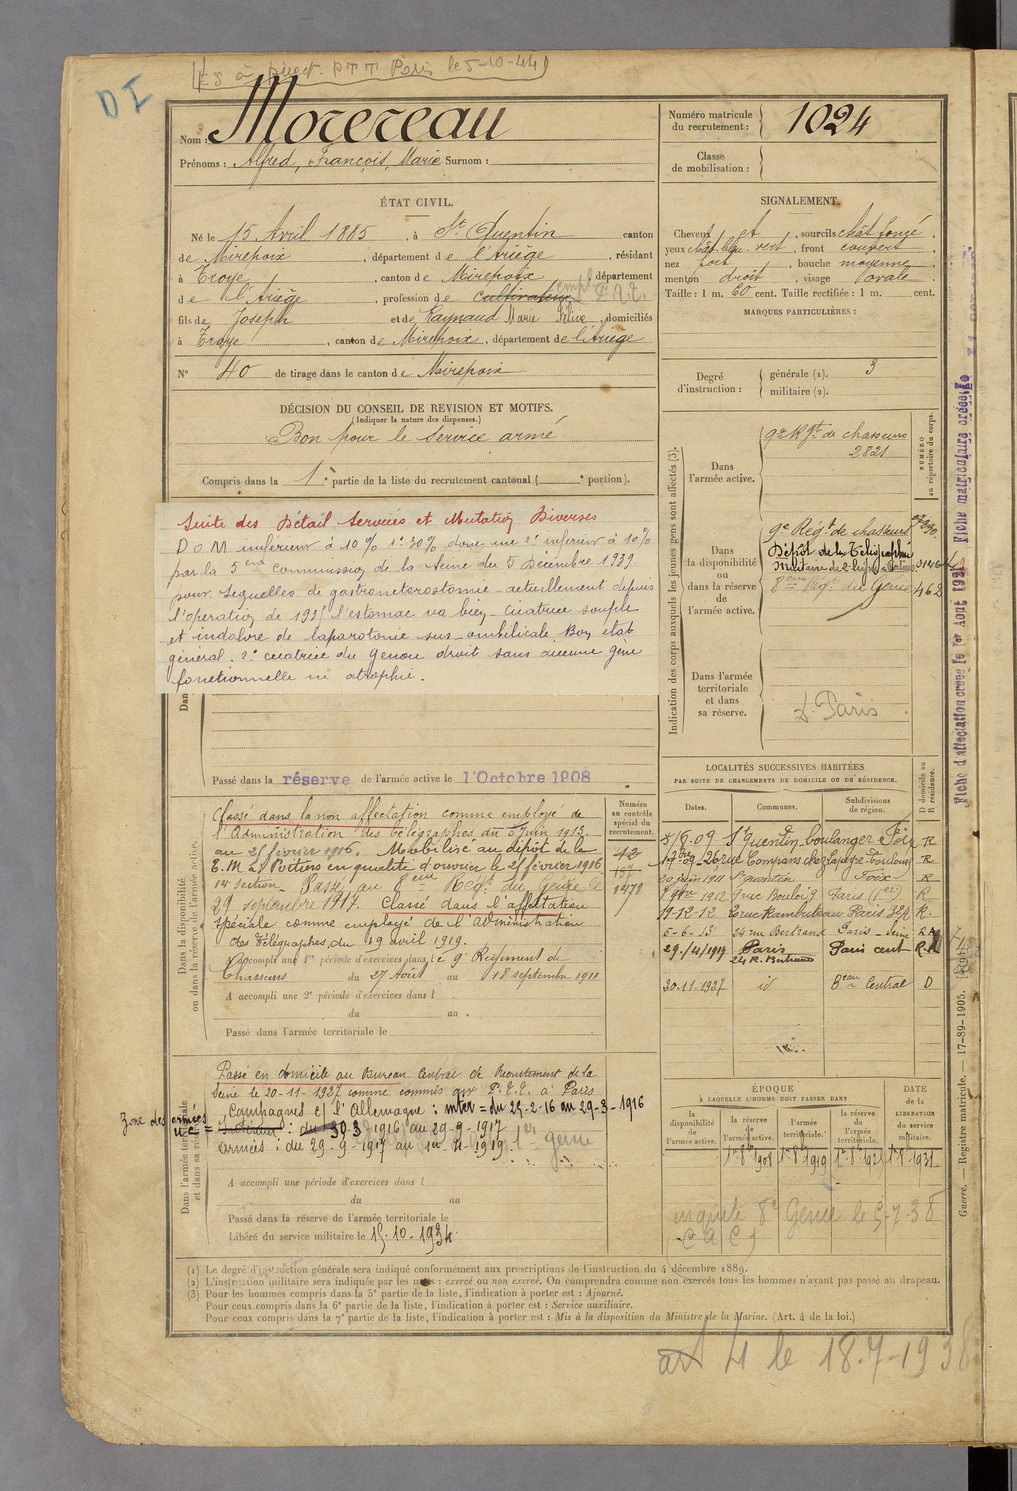 DI
PTT Paris le 5-10-44)
Nom : Morereau
Prénoms : Alfred, François, Marie Surnom :
Numéro matricule du recrutement : 1024
Classe de mobilisation :
ÉTAT CIVIL.
Né le 15 Avril 1885, à St Quentin canton
de Mirepoix, département de l'Ariège, résidant
à Troye, canton de Mirepoix, département
de l'Ariège, profession de cultivateur
fils de Joseph et de Raynaud Marie Félive, domiciliés
à Troye, canton de Mirepoix, département de l'Ariège
N° 40 de tirage dans le canton de Mirepoix
SIGNALEMENT.
Cheveux et, sourcils chât foncé.
yeux, front couvert
nez fort, bouche moyenne
menton droit, visage ovale
Taille : 1 m. 60 cent. Taille rectifiée : 1 m. cent.
MARQUES PARTICULIÈRES :
Degré d'instruction : générale (1). 3
militaire (2).
DÉCISION DU CONSEIL DE REVISION ET MOTIFS.
(Indiquer la nature des dispenses.)
Bon pour le service armé
Compris dans la 1e partie de la liste du recrutement cantonal ( e portion).
Suite des Détail Services et Mutation Diverses
D O M inférieur à 10% 1° 30% donc une 2° inférieur à 10%
par la 5eme commission de la Seine du 5 Décembre 1939
pour sequelles de gastroneterostomie - actuellement depuis
l'opération de 1935 l'estomac va bien - cicatrice souple
et indolore de laparotomie sus-ombilicale. Bon état
général. 2° cicatrice du genou droit sans aucune gêne
fonctionnelle ni atrophie.
Passé dans la réserve de l'armée active le 1 Octobre 1908
Indication des corps auxquels les jeunes gens sont affectés (3).
NUMÉRO au répertoire du corps.
Dans l'armée active.
9e Rgt de chasseurs
2821
Dans la disponibilité ou dans la réserve de l'armée active.
9e Régt de chasseurs
Dépôt de la Télégraphie
Militaire de
8eme Régt du Génie 462
Dans l'armée territoriale et dans sa réserve.
D. Paris
Fiche d'affectation créée le 1er Août 1931
Fiche matriculaire créée le
Dans la disponibilité ou dans la réserve de l'armée active.
Classé dans la non affectation comme employé de
l'Administration des télégraphes du 5 Juin 1913.
au 25 février 1916. Mobilisé au dépôt de la
T. M. à Poitiers en qualité d'ouvrier le 25 février 1916
14e Section - Passé au 8eme Régt du Génie le
29 septembre 1917. Classé dans l'affectation
spéciale comme employé de l'administration
des Télégraphes du 19 avril 1919.
A accompli une 1re période d'exercices dans le 9e Régiment de
Chasseurs du 27 Août au 18 septembre 1911
A accompli une 2e période d'exercices dans l
du au .
Passé dans l'armée territoriale le
Numéro au contrôle spécial du recrutement.
12
LOCALITÉS SUCCESSIVES HABITÉES
PAR SUITE DE CHANGEMENTS DE DOMICILE OU DE RÉSIDENCE.
Dates. Communes. Subdivisions de région. D domicile ou R résidence.
5/8.09 St Quentin boulanger Foix R
26 rue Compans chez Lapeyre Toulouse R
20 juin 1911 St Quentin Foix R
1912 9 rue Bouloi Paris (1er) R
19-12-12 rue Rambuteau Paris R.
5-6-13 24 rue Bertrand Paris - Seine
29/4/1919 Paris 24 R. Bertrand Paris cent
30.11-1927 id Beau Central D
Dans l'armée territoriale et dans sa réserve.
Passé en domicile au Bureau Central de Recrutement de la
Seine le 20-11-1927 comme commis aux P.T.T. à Paris
Campagnes c/ l'Allemagne : inter = du 25-2-16 au 29-3-1916
Zone des armées
Intérieur : du 30 3 1916 au 29-9-1917
armées : du 29-9-1917 au 1er-4-1919. 1er génie
A accompli une période d'exercices dans l
du au
Passé dans la réserve de l'armée territoriale le
Libéré du service militaire le 15.10.1934
ÉPOQUE
À LAQUELLE L'HOMME DOIT PASSER DANS
la disponibilité de l'armée active.
la réserve de l'armée active. 1er 8bre 1908
l'armée territoriale. 1er 8bre 1919
la réserve de l'armée territoriale. 1er 8bre 1925
DATE de la LIBÉRATION du service militaire. 1er 8bre 1931
8e Génie le 5-7-38
Guerre. — Registre matricule. — 17-89-1905.
(1) Le degré d'instruction générale sera indiqué conformément aux prescriptions de l'instruction du 4 décembre 1889.
(2) L'instruction militaire sera indiquée par les mots : exercé ou non exercé. On comprendra comme non exercés tous les hommes n'ayant pas passé au drapeau.
(3) Pour les hommes compris dans la 5e partie de la liste, l'indication à porter est : Ajourné.
Pour ceux compris dans la 6e partie de la liste, l'indication à porter est : Service auxiliaire.
Pour ceux compris dans la 7e partie de la liste, l'indication à porter est : Mis à la disposition du Ministre de la Marine. (Art. 4 de la loi.)
art 4 le 18.7-1938